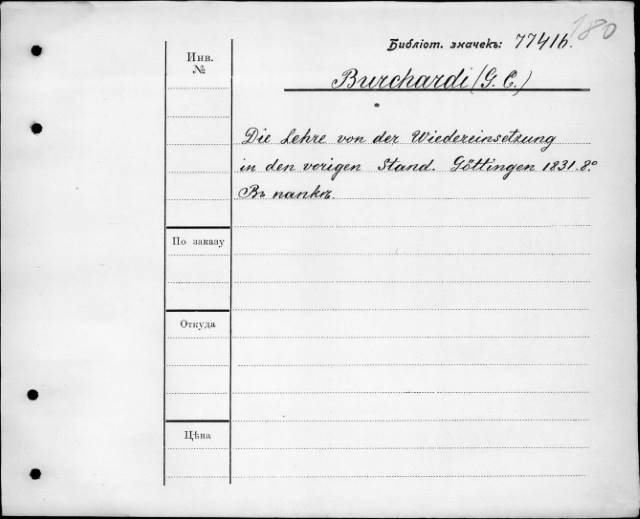 180
Библіот. значекъ: 77416.
Инв. №
Burchardi (G. C.)
Die Lehre von der Wiedereinsetzung
in den vorigen Stand. Göttingen 1831. 8.°
Въ папкѣ.
По заказу
Откуда
Цѣна